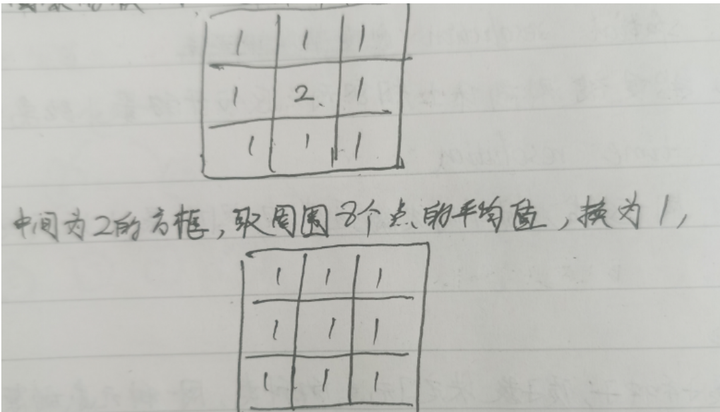 1 1 1
1 2 1
1 1 1
中间为2的方框,取周围8个点的平均值,换为1,
1 1 1
1 1 1
1 1 1